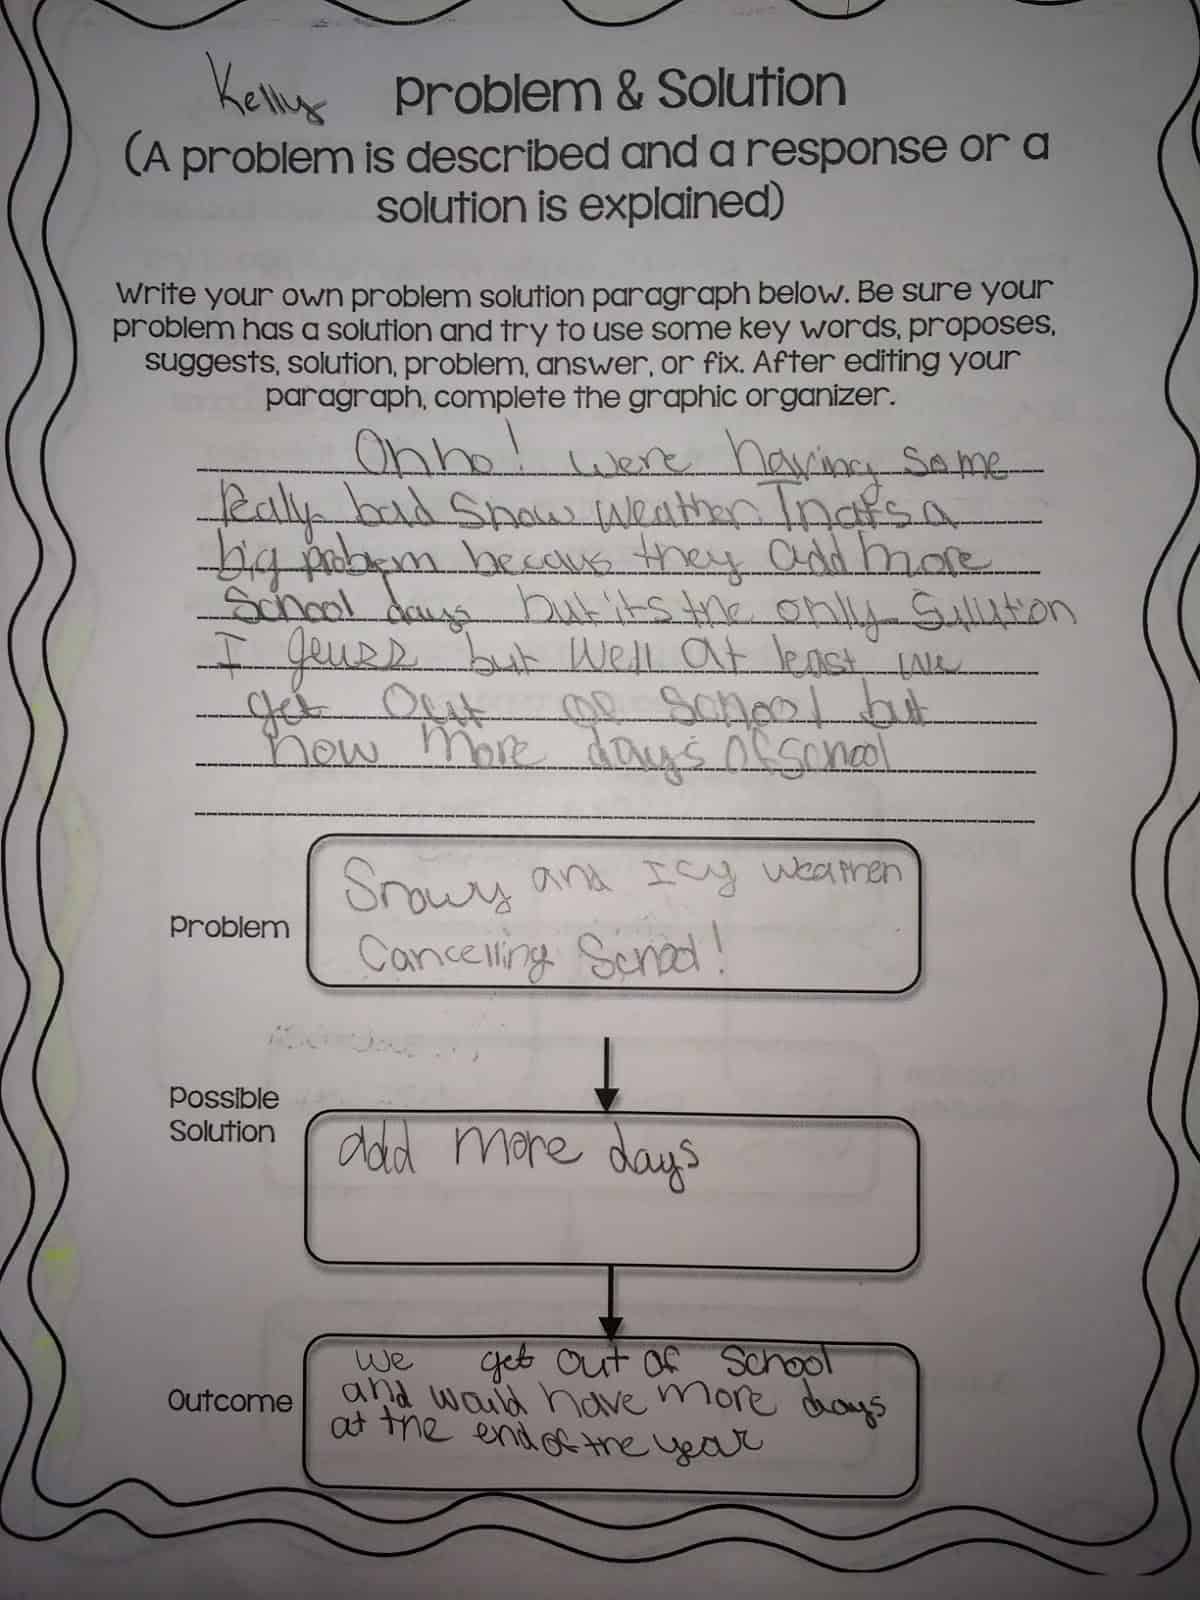 Kelly Problem & Solution
(A problem is described and a response or a
solution is explained)
Write your own problem solution paragraph below. Be sure your
problem has a solution and try to use some key words, proposes,
suggests, solution, problem, answer, or fix. After editing your
paragraph, complete the graphic organizer.
Ohho! were having some
Realy bad Snow weather. Thats a
big problem becaus they add more
School days but it's the only Sulution
I geuss but well at least we
get Out of School but
now more days of school
Problem
Snowy and Icy weather
Cancelling School!
Possible
Solution
add more days
Outcome
we get out of School
and would have more days
at the end of the year